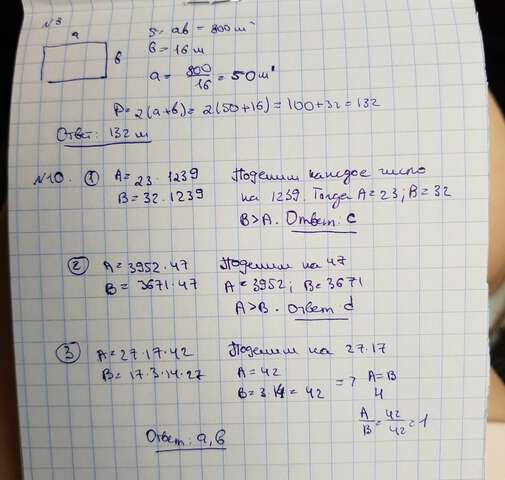 №8
a
b
S = ab = 800 м²
b = 16 м
a = 800/16 = 50 м
P = 2(a+b) = 2(50+16) = 100+32 = 132
Ответ: 132 м
№10. ① A = 23·1239
B = 32·1239
Поделим каждое число
на 1239. Тогда A = 23; B = 32
B>A. Ответ: c
② A = 3952·47
B = 3671·47
Поделим на 47
A = 3952; B = 3671
A>B. Ответ d
③ A = 27·17·42
B = 17·3·14·27
Поделим на 27·17
A = 42
B = 3·14 = 42
=> A=B
и
A/B = 42/42 = 1
Ответ: a, b